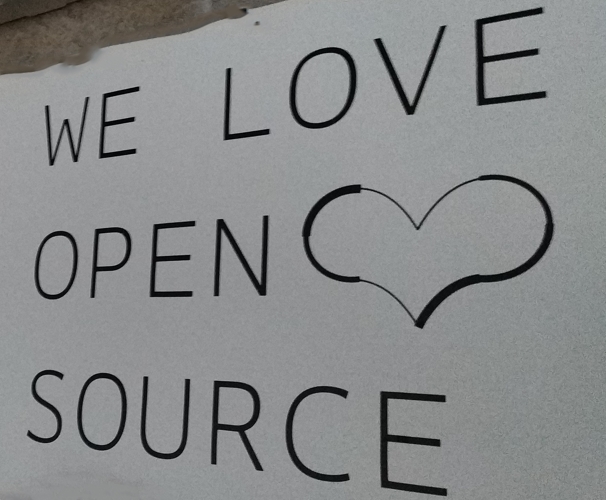 WE LOVE
OPEN
SOURCE